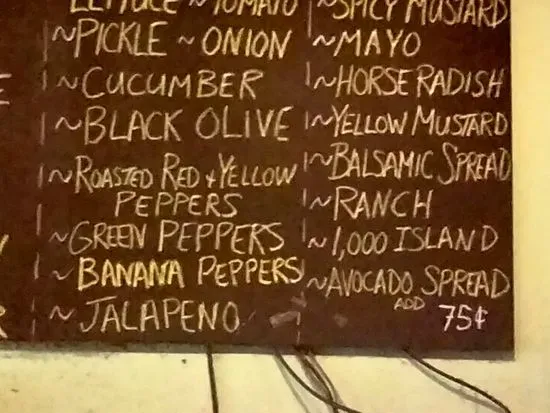 LETTUCE ~ TOMATO
~PICKLE ~ ONION
~CUCUMBER
~BLACK OLIVE
~ROASTED RED + YELLOW
PEPPERS
~GREEN PEPPERS
~BANANA PEPPERS
~JALAPENO
~SPICY MUSTARD
~MAYO
~HORSE RADISH
~YELLOW MUSTARD
~BALSAMIC SPREAD
~RANCH
~1,000 ISLAND
~AVOCADO SPREAD
ADD 75¢